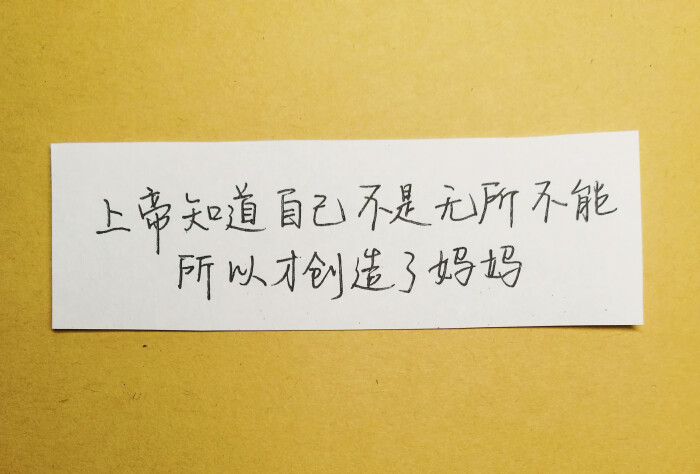 上帝知道自己不是无所不能
所以才创造了妈妈